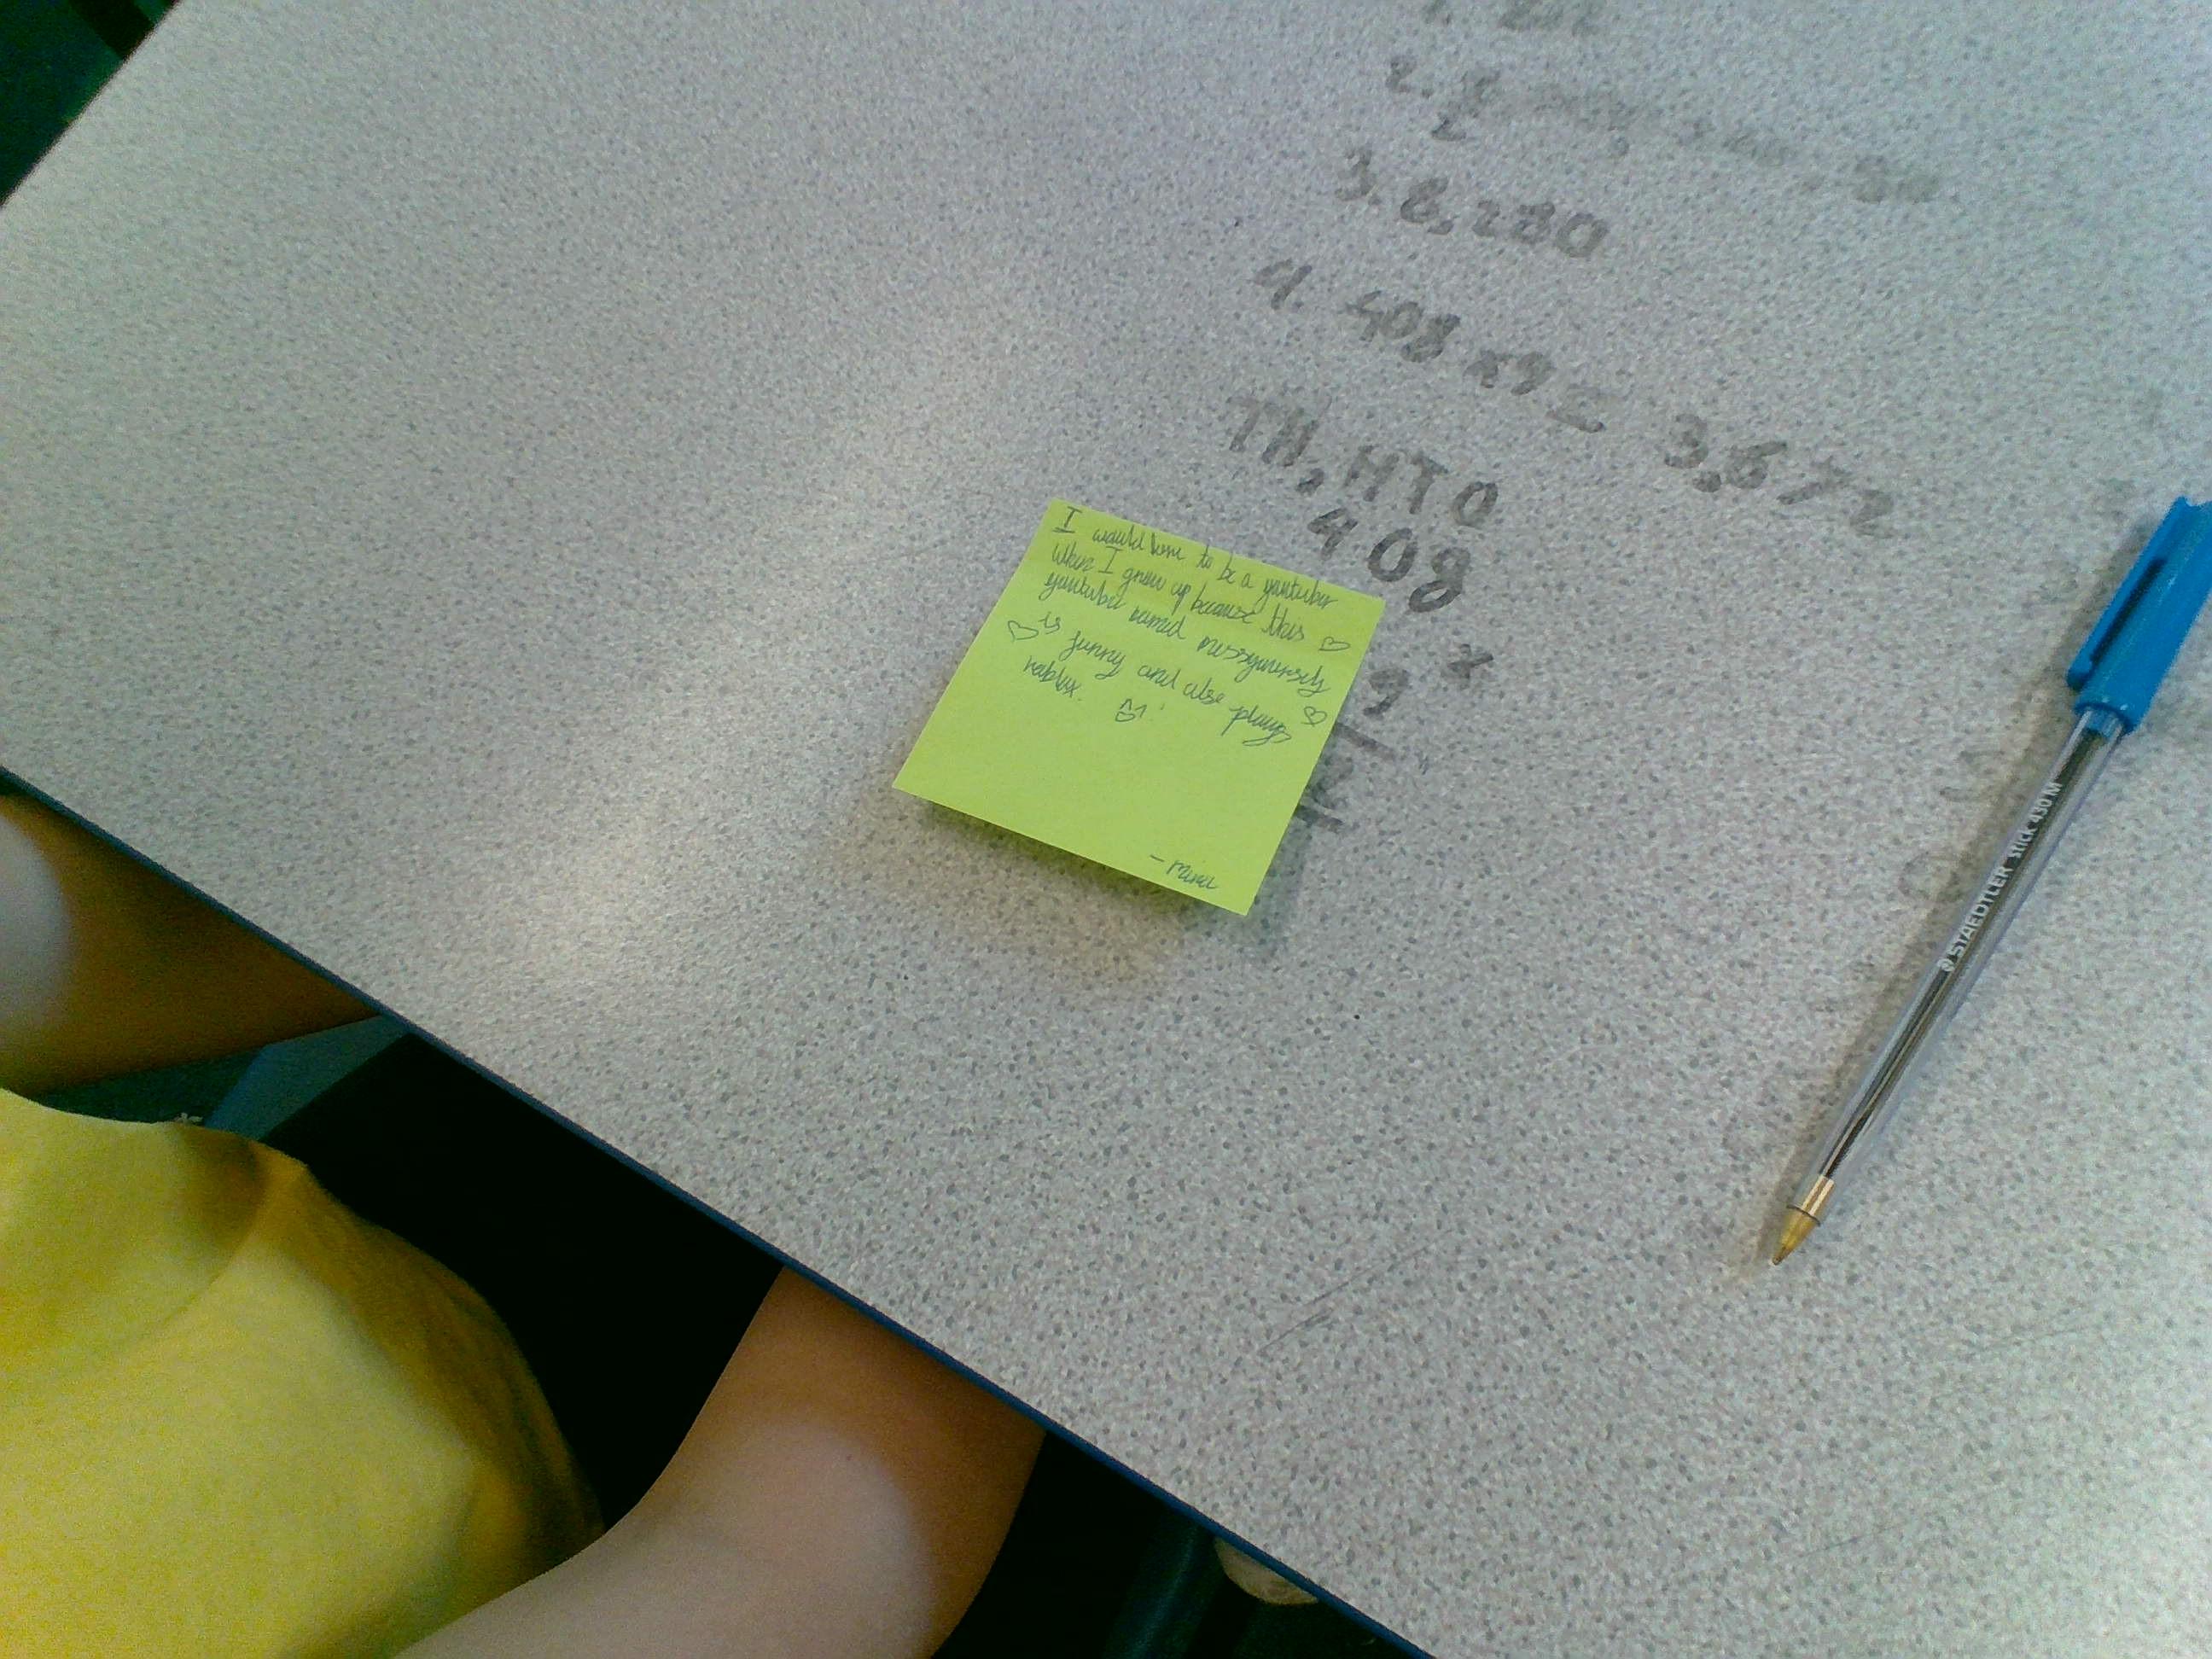 3. 6,280
4. 408 x 9 = 3,672
TH, H T O
408
x
9
I would love to be a youtuber
when I grow up because this
youtuber named
is funny and also plays
roblox.
STAEDTLER stick 430 M